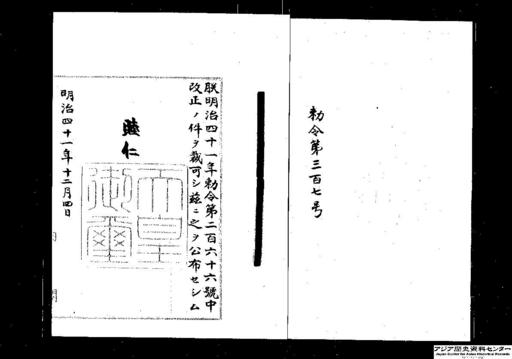 勅令第三百七号
朕明治四十一年勅令第二百六十六號中
改正ノ件ヲ裁可シ茲ニ之ヲ公布セシム
睦仁
天皇
御璽
明治四十一年十二月四日
アジア歴史資料センター
Japan Center for Asian Historical Records